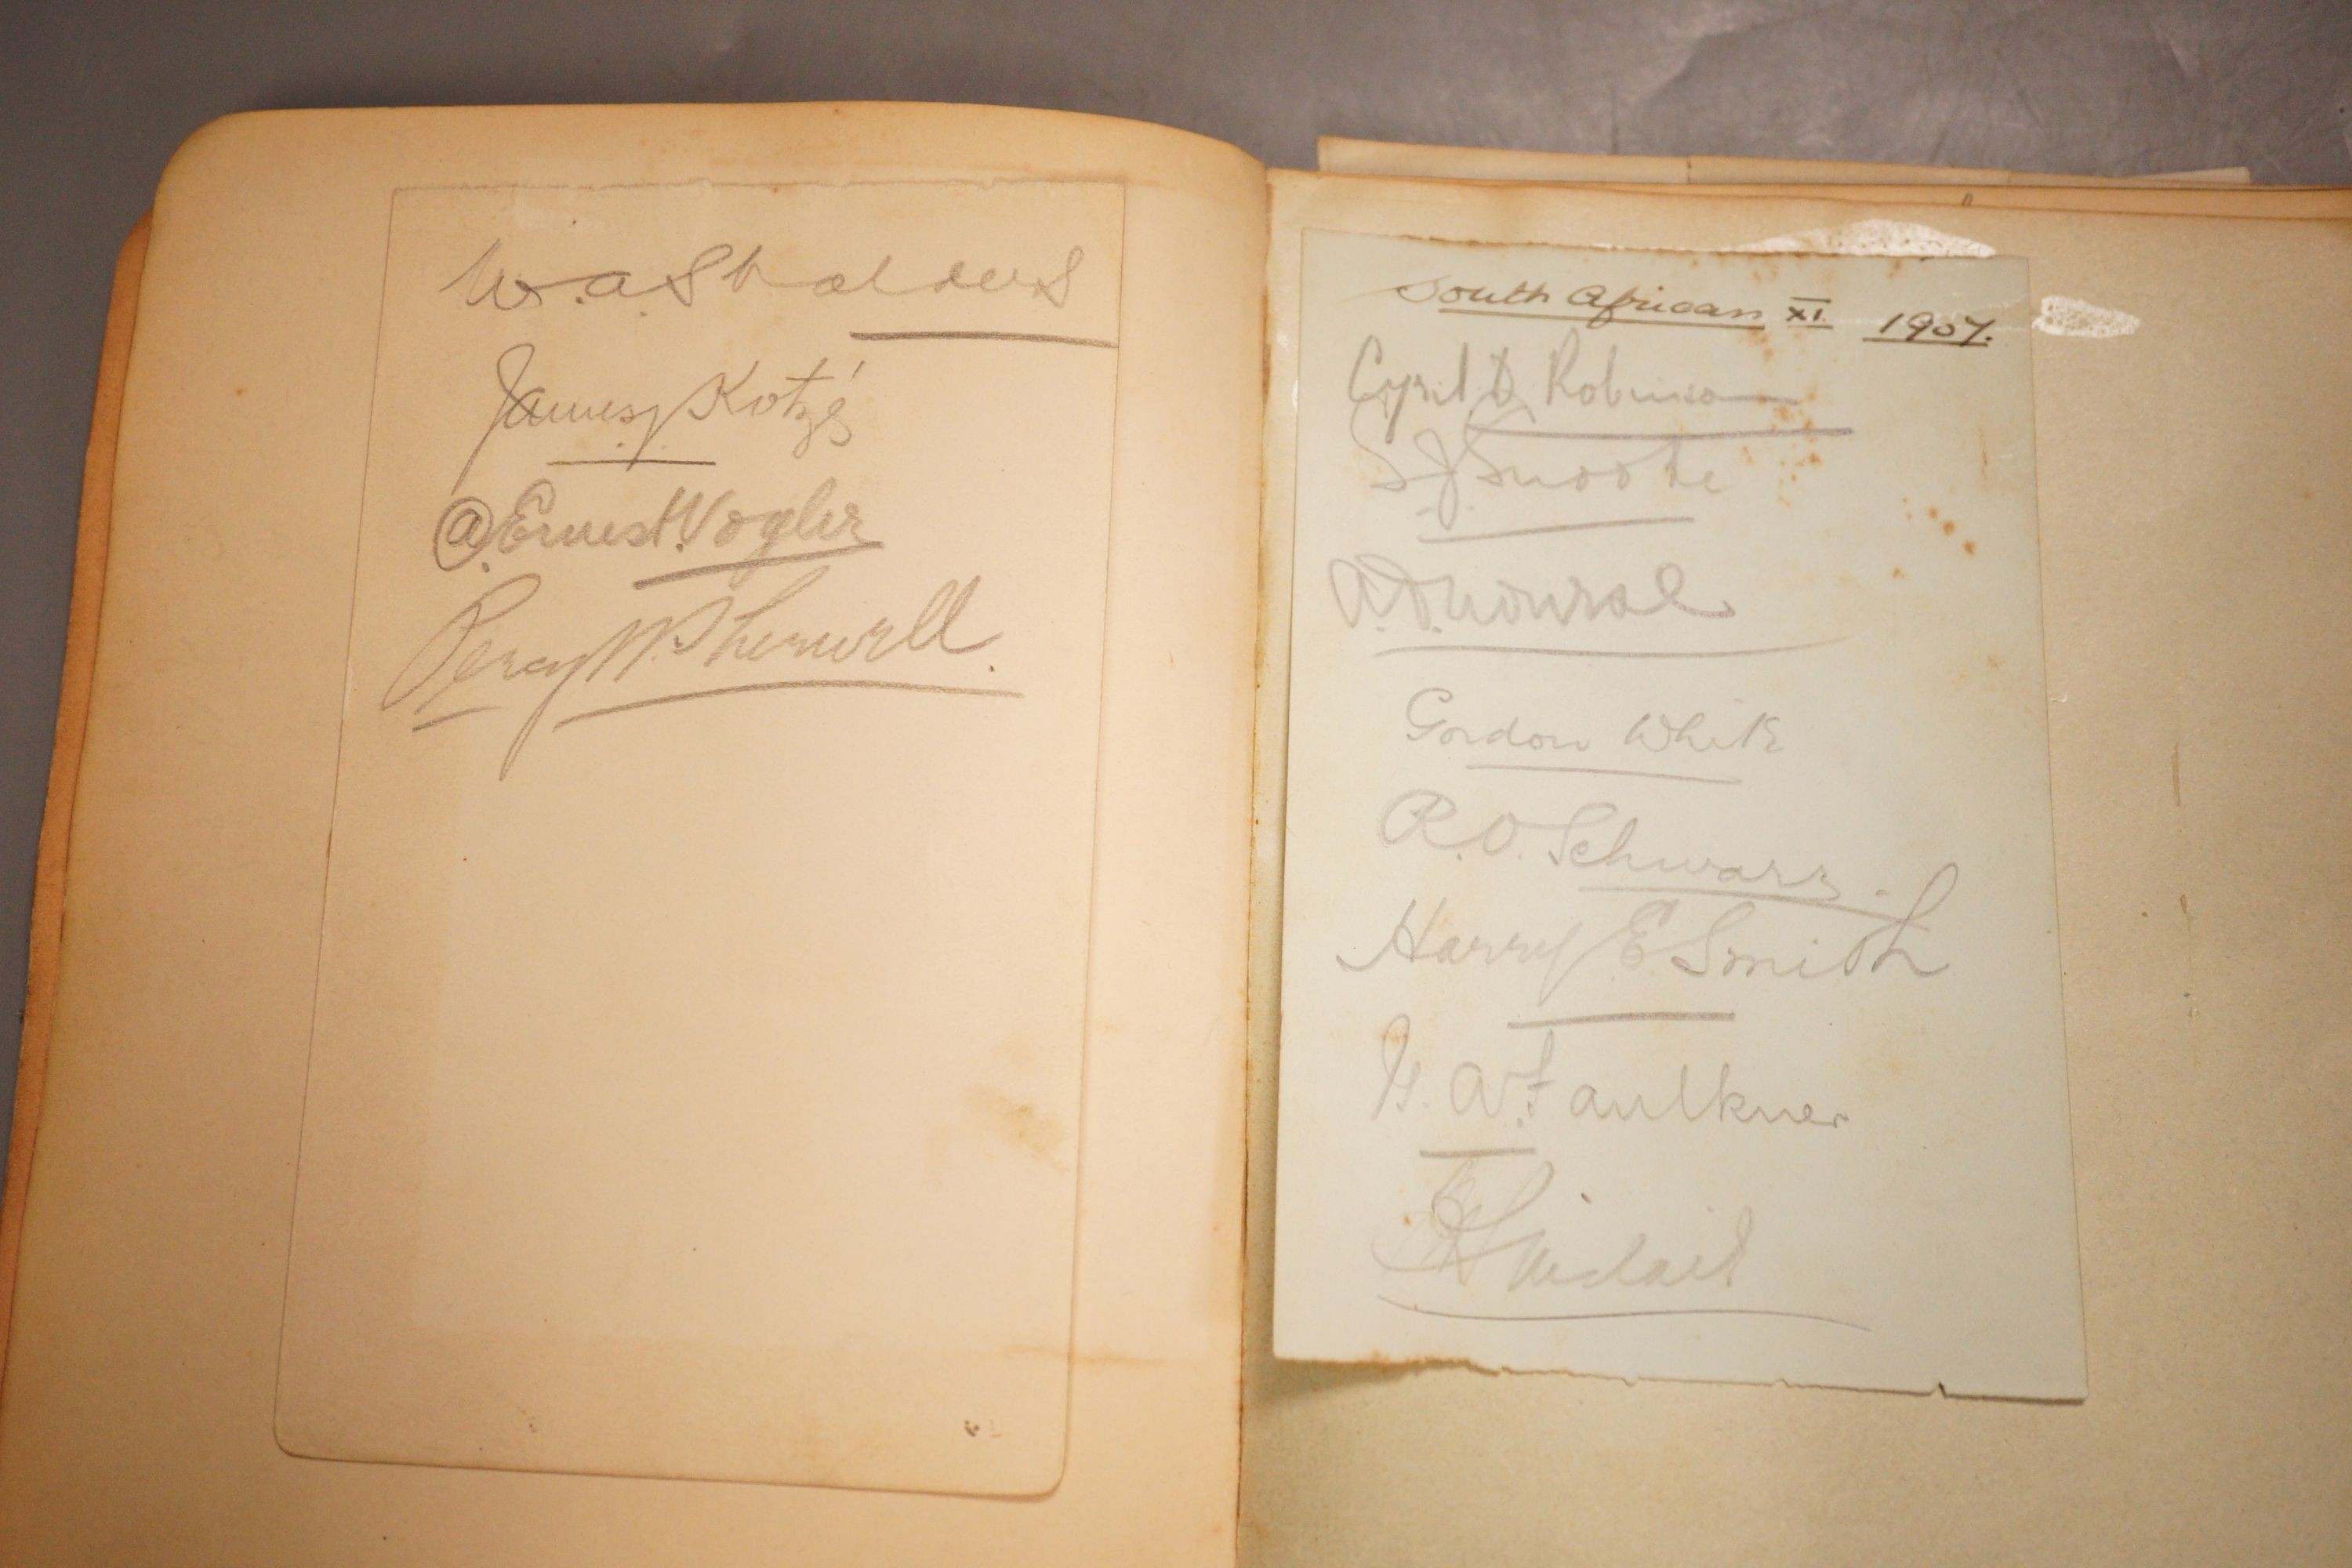 W. A. Shalders
James J Kotzé
A. Ernest Vogler
Percy W. Sherwell.
South African XI. 1907.
Cyril D Robinson
S. J. Snooke
A. D. Nourse
Gordon White
R. O. Schwarz.
Harry E Smith
G. A. Faulkner